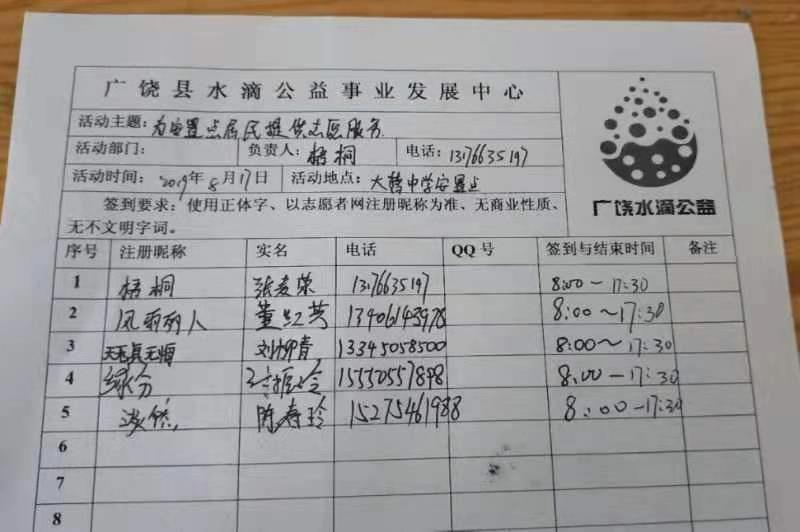 广饶县水滴公益事业发展中心
活动主题：为安置点居民提供志愿服务
活动部门： 负责人：梧桐 电话：13176635197
活动时间：2019年8月17日 活动地点：大营中学安置点
签到要求：使用正体字、以志愿者网注册昵称为准、无商业性质、
无不文明字词。
广饶水滴公益
序号 注册昵称 实名 电话 QQ号 签到与结束时间 备注
1 梧桐 张麦荣 13176635197 8:00～17:30
2 风雨丽人 董红芳 13406143978 8:00～17:30
3 天真无悔 刘柳青 13345058500 8:00～17:30
4 缘分 15550557898 8:00—17:30
5 陈寿玲 15275461988 8:00—17:30
6
7
8